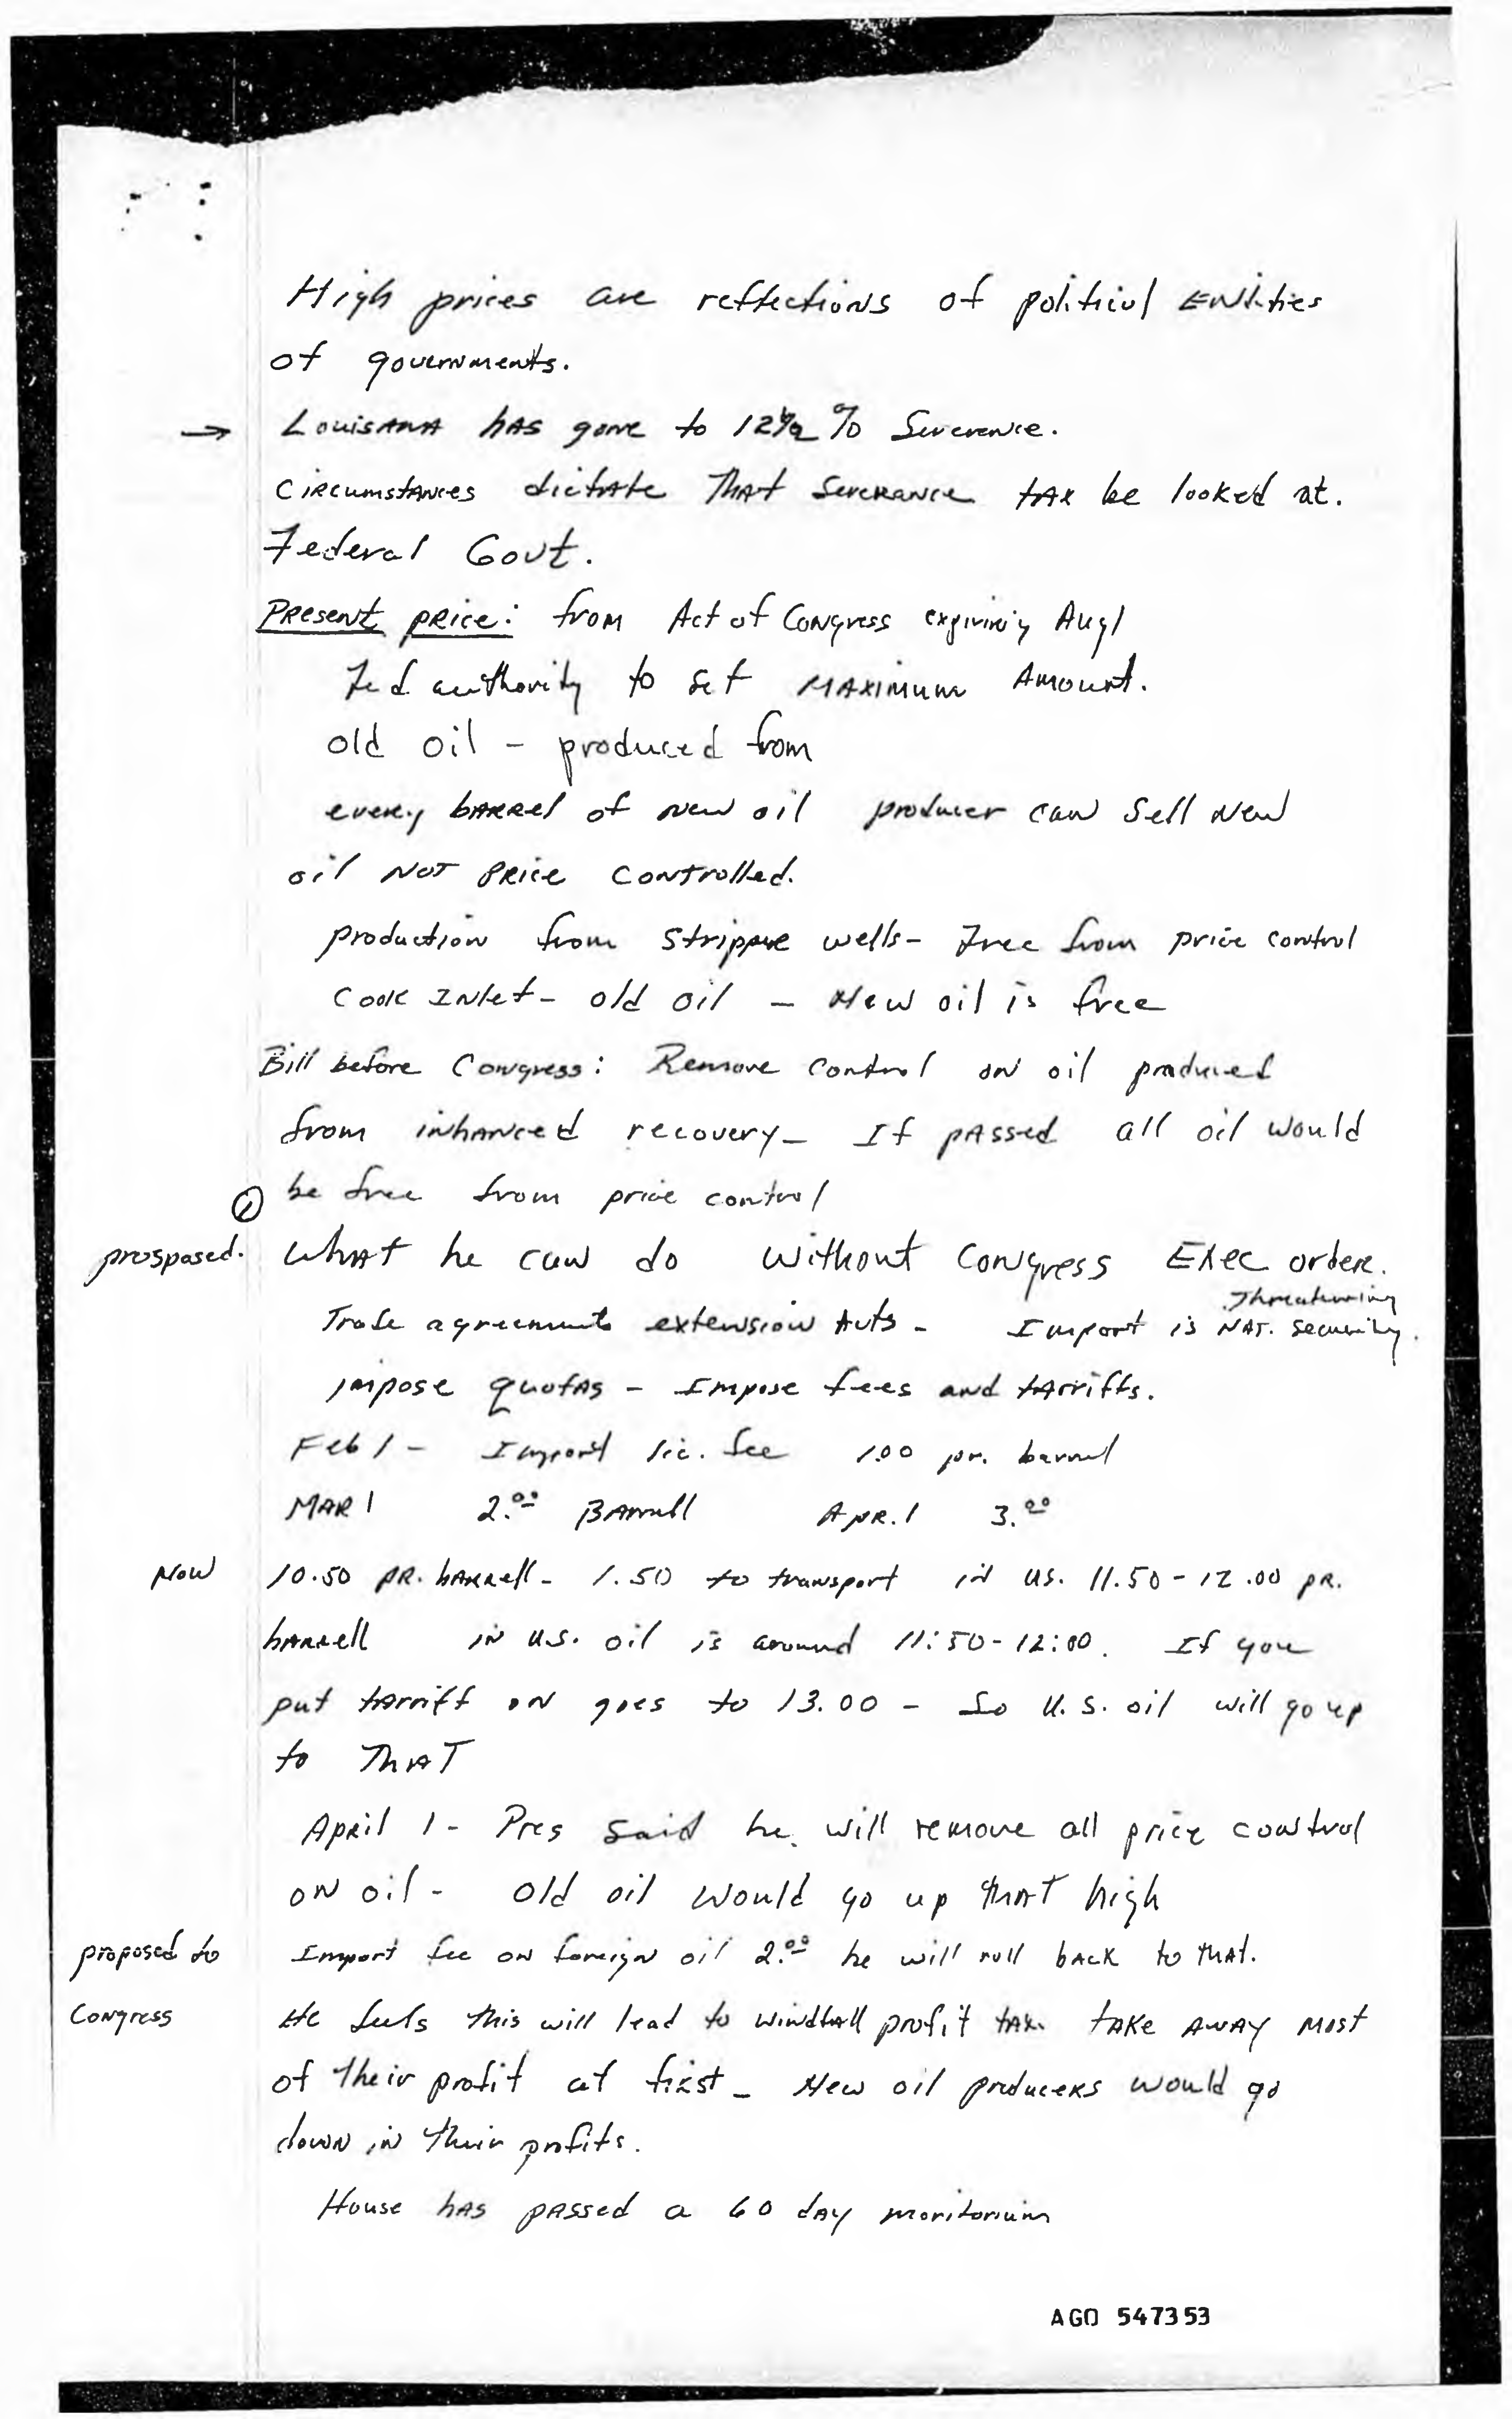 High prices are reflections of politicul Entities
of governments.
→ Louisana has gone to 12½ % Severence.
Circumstances dictate That Severance tax be looked at.
Federal Govt.
Present price: from Act of Congress expiring Aug 1
Fed authority to set Maximum Amount.
old oil - produced from
every barrel of new oil producer can sell new
oil Not Price Controlled.
production from Stripper wells - Free from price control
Cook Inlet - old oil - New oil is free
Bill before Congress: Remove control on oil produced
from inhanced recovery - If passed all oil would
be free from price control
prosposed. What he can do without Congress Exec order.
Threatening
Trade agreements extension Acts - Import is Nat. Security.
impose quotas - Impose fees and tarriffs.
Feb 1 - Import lic. fee 1.00 pr. barrel
Mar 1 2.00 Barrell Apr. 1 3.00
Now 10.50 pr. barrell - 1.50 to transport in US. 11.50 - 12.00 pr.
barrell in U.S. oil is around 11:50 - 12:00. If you
put tarriff on goes to 13.00 - So U.S. oil will go up
to That
April 1 - Pres said he will remove all price control
on oil - old oil would go up that high
proposed to Import fee on foreign oil 2.00 he will roll back to that.
Congress He feels this will lead to windfall profit tax. take away most
of their profit at first - New oil producers would go
down in their profits.
House has passed a 60 day moritorium
AGO 547353